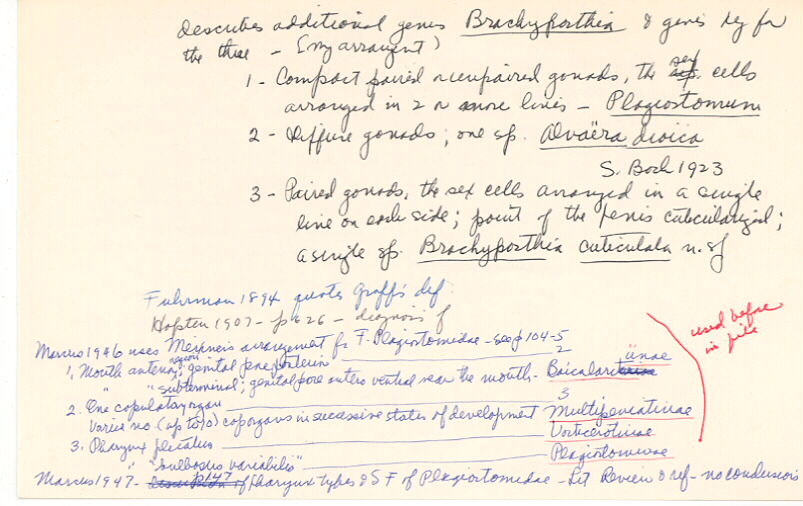 describes additional genus Brachyposthia & gives key for
the three - (my arrangent)
1 - Compact paired or unpaired gonads, the sex cells
arranged in 2 or more lines - Plagiostomum
2 - diffuse gonads; one sp. Alvaëra dioica
S. Bock 1923
3 - Paired gonads, the sex cells arranged in a single
line on each side; point of the penis cuticularized;
a single sp. Brachyposthia cuticulata n. sp
Fuhrman 1894 quotes Graff's def.
Hofsten 1907 - p 626 - diagnosis of
Marcus 1946 uses Meixner's arrangement for F. Plagiostomidae - see p 104-5
1. Mouth anterior region; genital pore posterior 2
" subterminal; genital pore enters ventral near the mouth - Baicalarctiinae
2. One copulatory organ 3
Varies no. (up to 70) cop organs in successive states of development Multipeniatinae
3. Pharynx plicatus Vorticerotinae
" "bulbosus variabilis" Plagiostominae
Marcus 1947 - p 147 of Pharynx types & S F of Plagiostomidae - Lit Review & ref - no conclusions
used before
in file